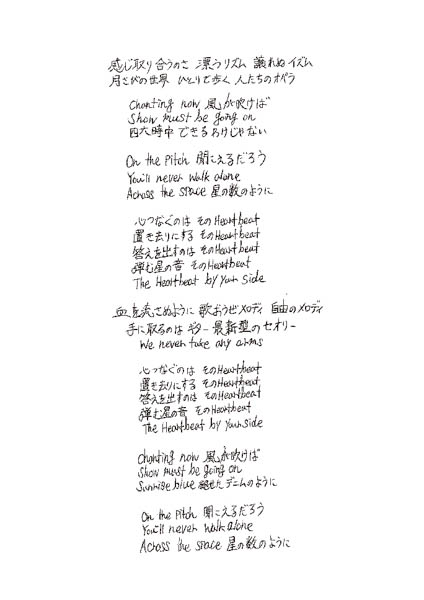 感じ取り合うのさ 漂うリズム 譲れぬイズム
月さびの世界 ひとりで歩く 人たちのオペラ
Chanting now 風が吹けば
Show must be going on
四六時中できるわけじゃない
On the Pitch 聞こえるだろう
You'll never walk alone
Across the space 星の数のように
心つなぐのは そのHeartbeat
置き去りにする そのHeartbeat
答えを出すのは そのHeartbeat
弾む星の音 そのHeartbeat
The Heartbeat by Your side
血を流さぬように 歌おうぜメロディ 自由のメロディ
手に取るのは ギター 最新型のセオリー
We never take any arms
心つなぐのは そのHeartbeat
置き去りにする そのHeartbeat
答えを出すのは そのHeartbeat
弾む星の音 そのHeartbeat
The Heartbeat by Your side
Chanting now 風が吹けば
Show must be going on
Sunrise blue 褪せたデニムのように
On the Pitch 聞こえるだろう
You'll never walk alone
Across the space 星の数のように